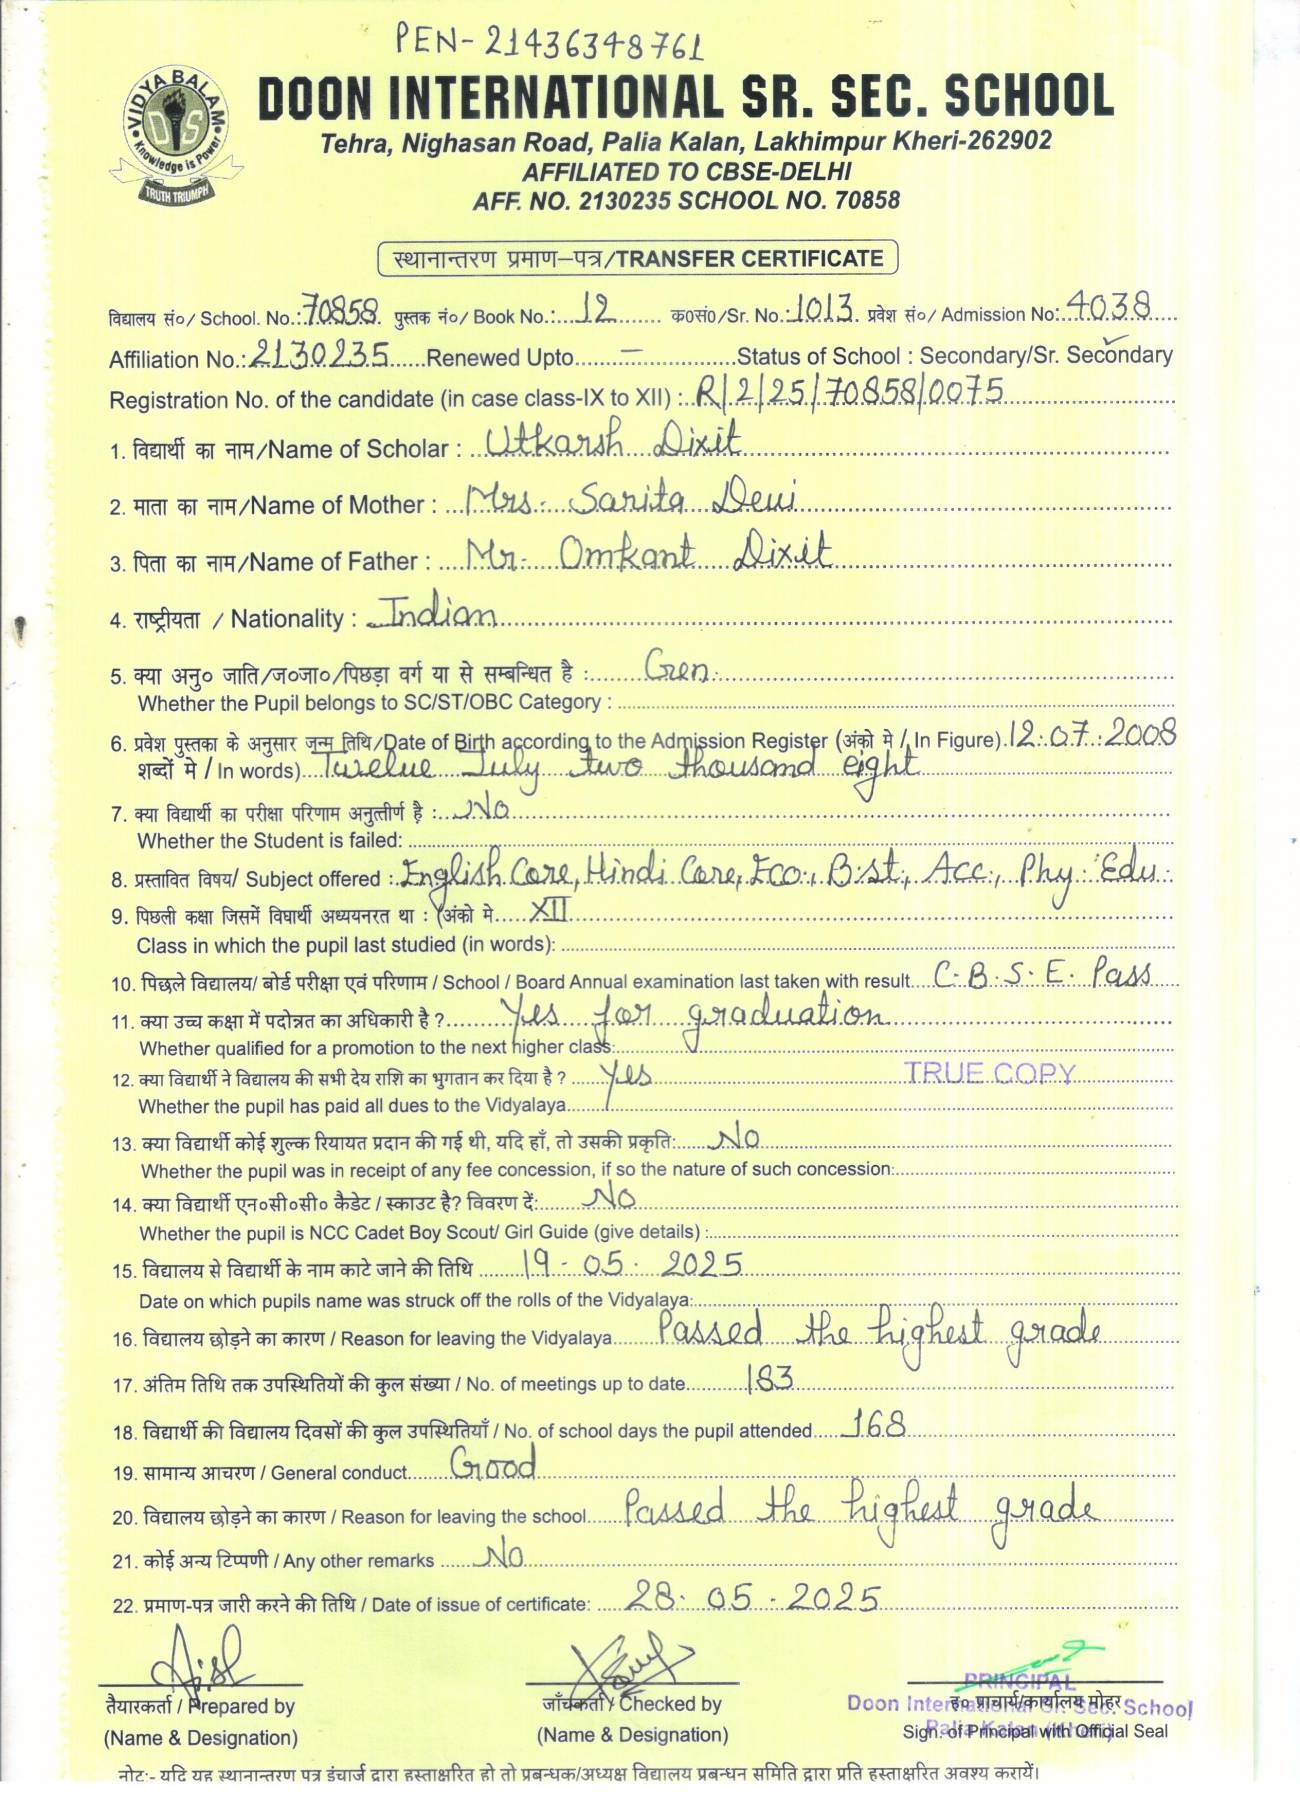 PEN- 21436348761
VIDYA BALAM
DIS
Knowledge is Power
TRUTH TRIUMPH
DOON INTERNATIONAL SR. SEC. SCHOOL
Tehra, Nighasan Road, Palia Kalan, Lakhimpur Kheri-262902
AFFILIATED TO CBSE-DELHI
AFF. NO. 2130235 SCHOOL NO. 70858
स्थानान्तरण प्रमाण–पत्र/TRANSFER CERTIFICATE
विद्यालय सं०/ School. No.: 70858 पुस्तक नं०/ Book No.: 12 क0सं0/Sr. No.: 1013 प्रवेश सं०/ Admission No: 4038
Affiliation No.: 2130235 Renewed Upto – Status of School : Secondary/Sr. Secondary
Registration No. of the candidate (in case class-IX to XII) : R/2/25/70858/0075
1. विद्यार्थी का नाम/Name of Scholar : Utkarsh Dixit
2. माता का नाम/Name of Mother : Mrs. Sarita Devi
3. पिता का नाम/Name of Father : Mr. Omkant Dixit
4. राष्ट्रीयता / Nationality : Indian
5. क्या अनु० जाति/ज०जा०/पिछड़ा वर्ग या से सम्बन्धित है : Gen.
Whether the Pupil belongs to SC/ST/OBC Category :
6. प्रवेश पुस्तका के अनुसार जन्म तिथि/Date of Birth according to the Admission Register (अंको मे / In Figure). 12.07.2008
शब्दों मे / In words) Twelve July two thousand eight
7. क्या विद्यार्थी का परीक्षा परिणाम अनुत्तीर्ण है : No
Whether the Student is failed:
8. प्रस्तावित विषय/ Subject offered : English Core, Hindi Core, Eco., B.st., Acc., Phy. Edu.
9. पिछली कक्षा जिसमें विघार्थी अध्ययनरत था : (अंको मे XII
Class in which the pupil last studied (in words):
10. पिछले विद्यालय/ बोर्ड परीक्षा एवं परिणाम / School / Board Annual examination last taken with result C.B.S.E. Pass
11. क्या उच्च कक्षा में पदोन्नत का अधिकारी है ? Yes for graduation
Whether qualified for a promotion to the next higher class:
12. क्या विद्यार्थी ने विद्यालय की सभी देय राशि का भुगतान कर दिया है ? Yes TRUE COPY
Whether the pupil has paid all dues to the Vidyalaya
13. क्या विद्यार्थी कोई शुल्क रियायत प्रदान की गई थी, यदि हाँ, तो उसकी प्रकृति: No
Whether the pupil was in receipt of any fee concession, if so the nature of such concession:
14. क्या विद्यार्थी एन०सी०सी० कैडेट / स्काउट है? विवरण दें: No
Whether the pupil is NCC Cadet Boy Scout/ Girl Guide (give details) :
15. विद्यालय से विद्यार्थी के नाम काटे जाने की तिथि 19-05-2025
Date on which pupils name was struck off the rolls of the Vidyalaya:
16. विद्यालय छोड़ने का कारण / Reason for leaving the Vidyalaya Passed the highest grade
17. अंतिम तिथि तक उपस्थितियों की कुल संख्या / No. of meetings up to date 183
18. विद्यार्थी की विद्यालय दिवसों की कुल उपस्थितियाँ / No. of school days the pupil attended 168
19. सामान्य आचरण / General conduct Good
20. विद्यालय छोड़ने का कारण / Reason for leaving the school Passed the highest grade
21. कोई अन्य टिप्पणी / Any other remarks No
22. प्रमाण-पत्र जारी करने की तिथि / Date of issue of certificate: 28.05.2025
PRINCIPAL
तैयारकर्ता / Prepared by जाँचकर्ता / Checked by ह० प्राचार्य/कार्यालय मोहर
Doon International Sr. Sec. School
(Name & Designation) (Name & Designation) Sign. of Principal with Official Seal
Palia Kalan
नोट:- यदि यह स्थानान्तरण पत्र इंचार्ज द्वारा हस्ताक्षरित हो तो प्रबन्धक/अध्यक्ष विद्यालय प्रबन्धन समिति द्वारा प्रति हस्ताक्षरित अवश्य करायें।